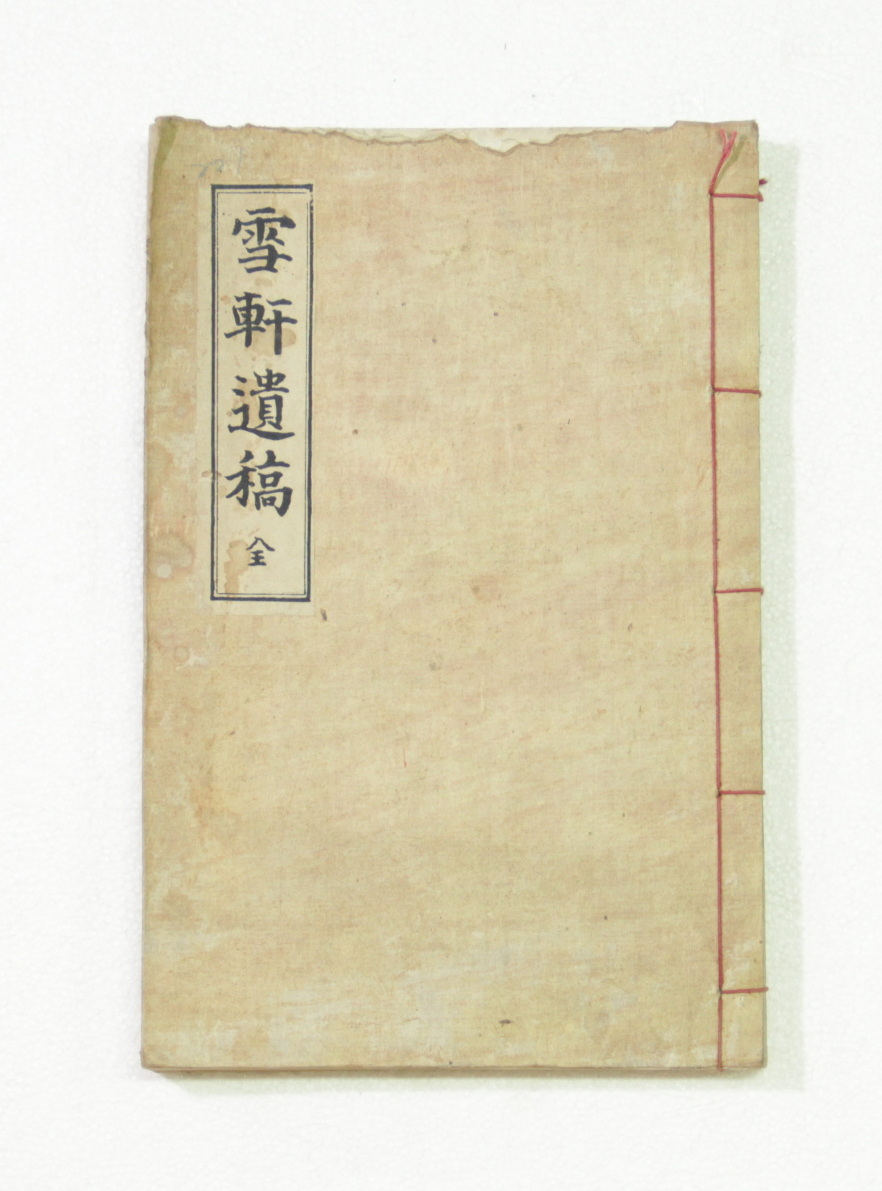 雪軒遺稿 全